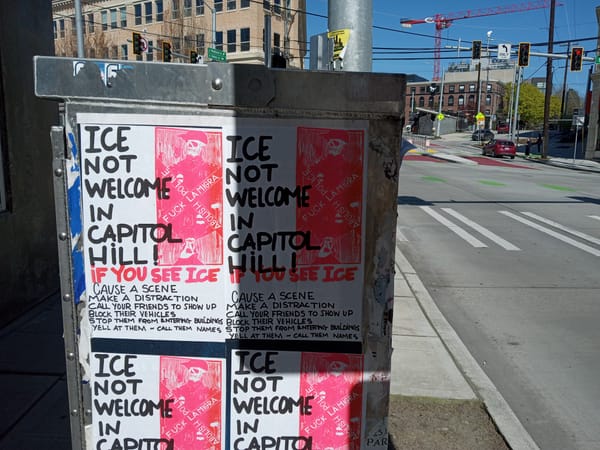 ICE
NOT
WELCOME
IN
CAPITOL
HILL!
IF YOU SEE ICE
CAUSE A SCENE
MAKE A DISTRACTION
CALL YOUR FRIENDS TO SHOW UP
BLOCK THEIR VEHICLES
STOP THEM FROM ENTERING BUILDINGS
YELL AT THEM - CALL THEM NAMES
FUCK LA MIGRA
ABOLISH
POLICE
ICE
NOT
WELCOME
IN
CAPITOL
HILL!
IF YOU SEE ICE
CAUSE A SCENE
MAKE A DISTRACTION
CALL YOUR FRIENDS TO SHOW UP
BLOCK THEIR VEHICLES
STOP THEM FROM ENTERING BUILDINGS
YELL AT THEM - CALL THEM NAMES
FUCK LA MIGRA
ABOLISH
POLICE
ICE
NOT
WELCOME
IN
CAPITOL
FUCK LA MIGRA
ICE
NOT
WELCOME
IN
CAPITOL
FUCK LA MIGRA
PAR